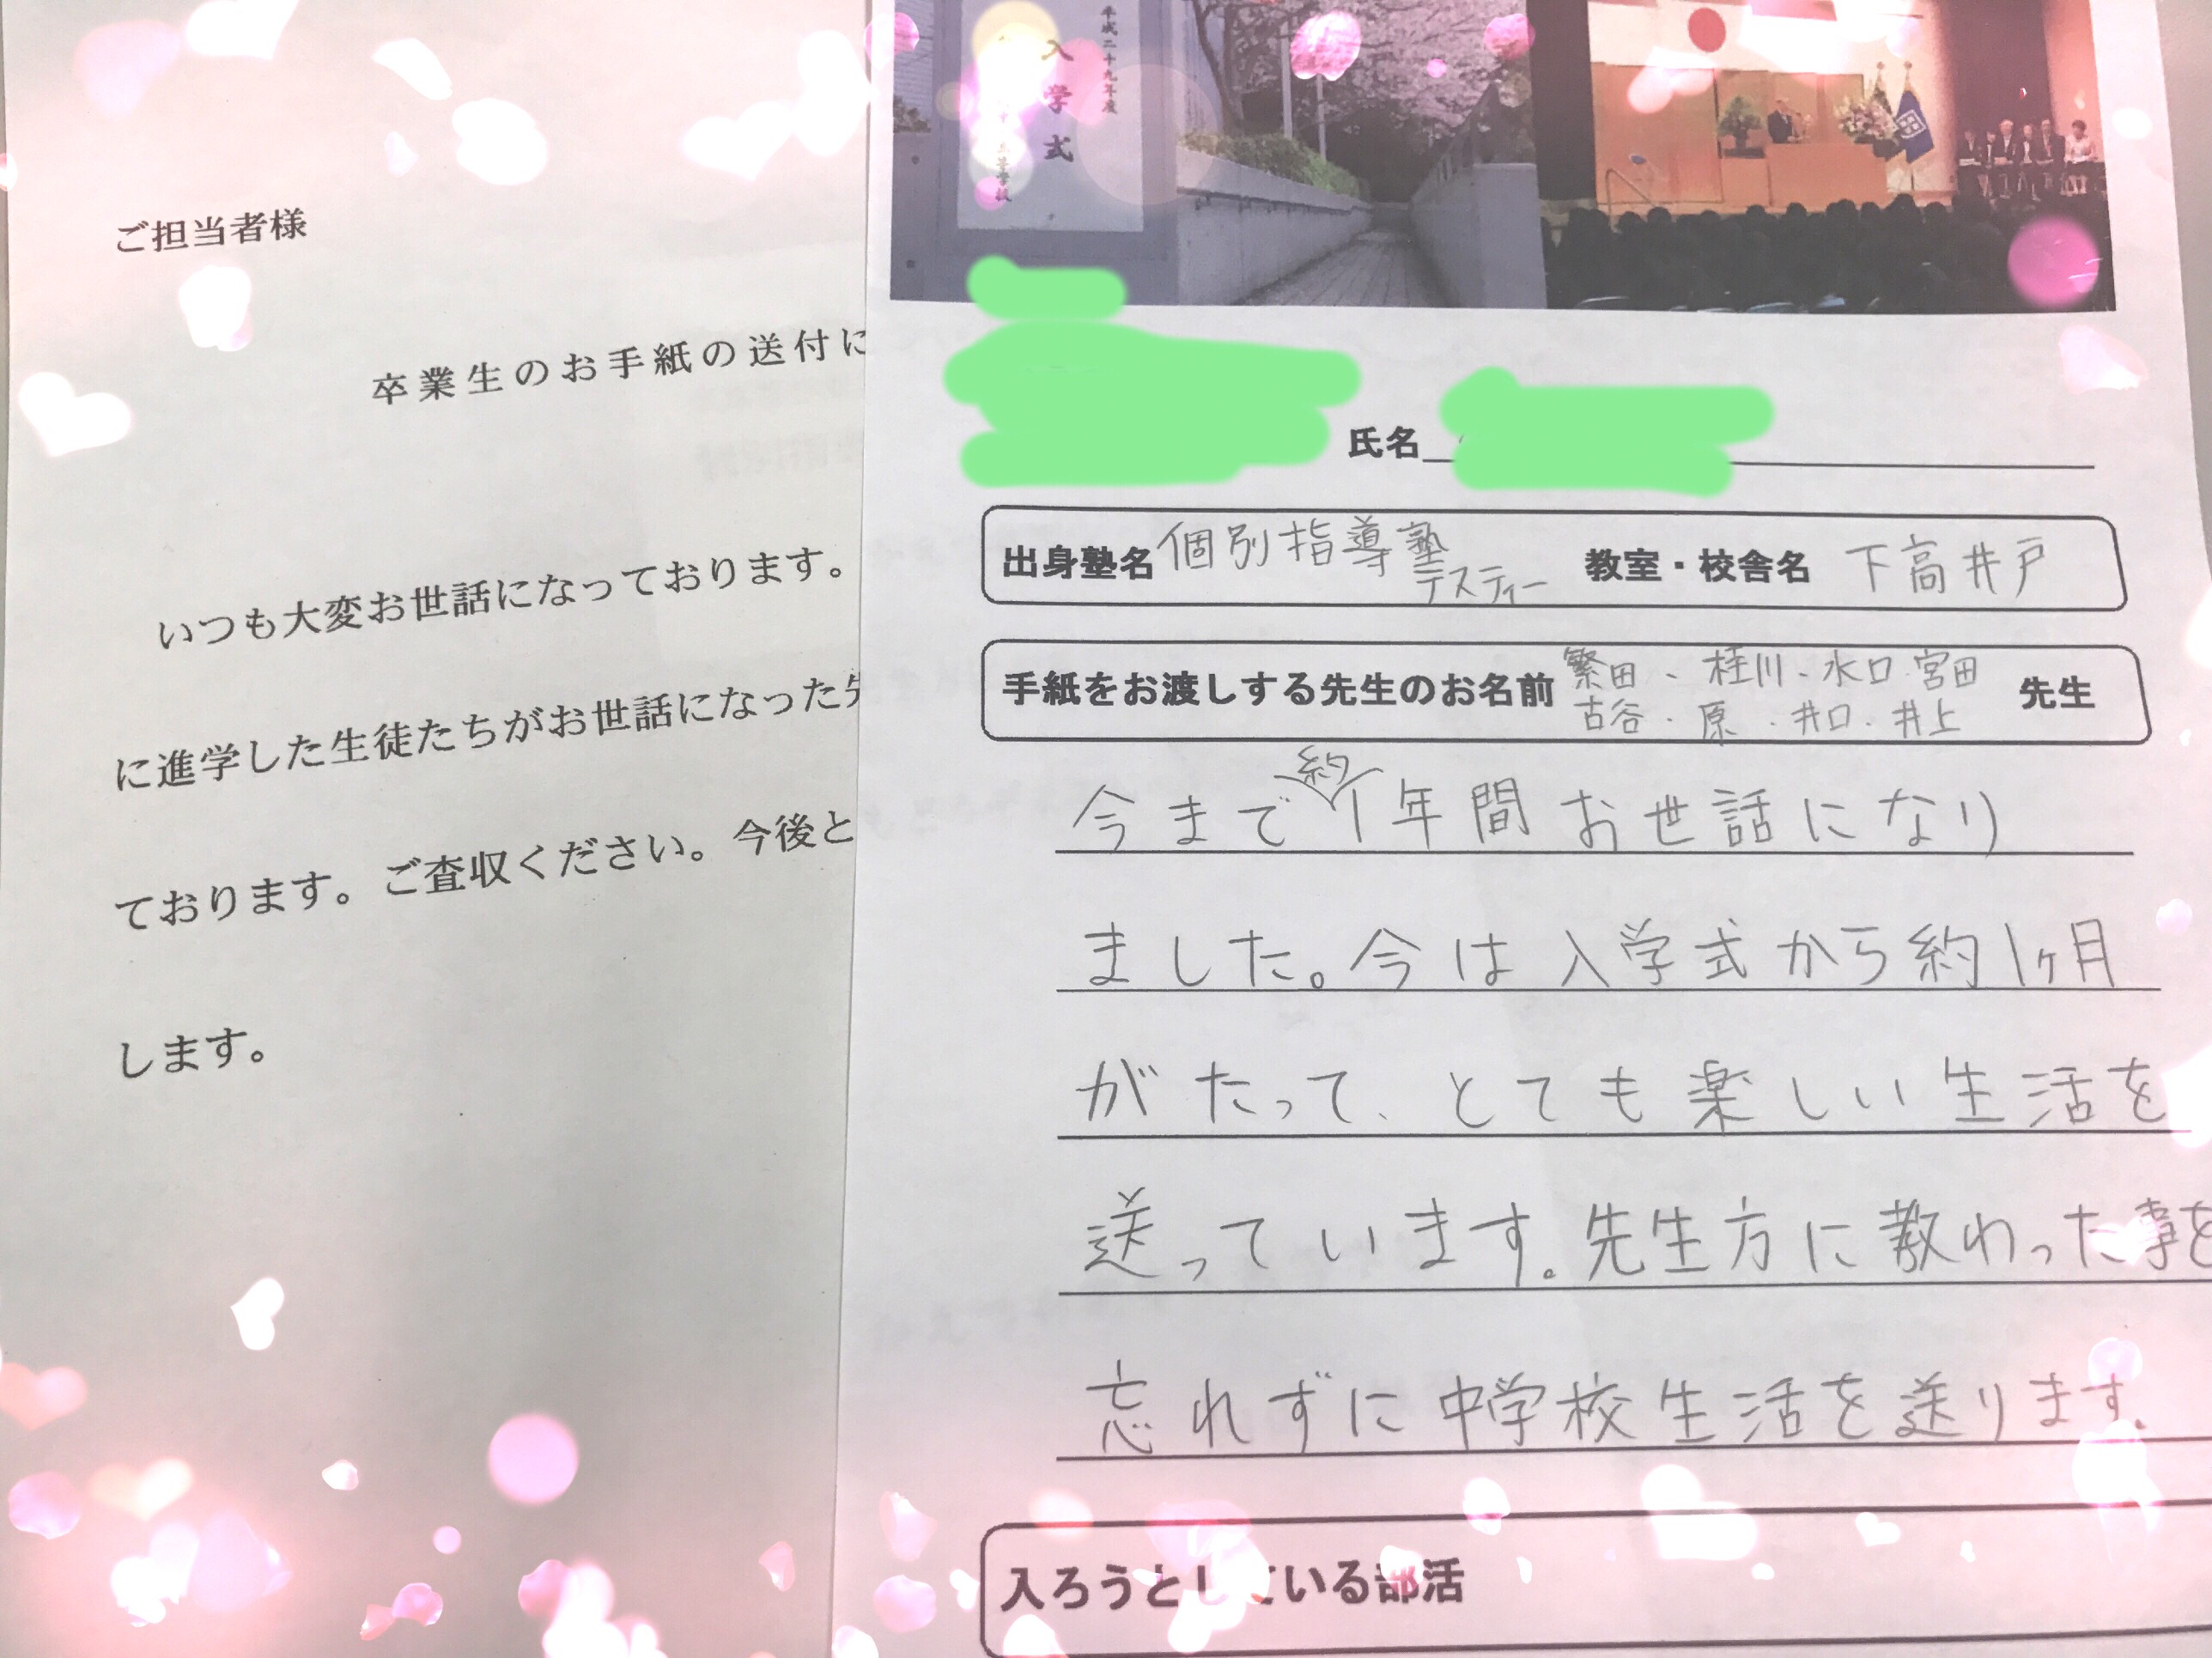 ご担当者様
卒業生のお手紙の送付に
いつも大変お世話になっております。
に進学した生徒たちがお世話になった先
ております。ご査収ください。今後と
します。
平成二十九年度
入学式
氏名
出身塾名 個別指導塾テスティー 教室・校舎名 下高井戸
手紙をお渡しする先生のお名前 繁田・桂川・水口・宮田 先生
古谷・原・井口・井上
今まで約1年間お世話になり
ました。今は入学式から約1ヶ月
がたって、とても楽しい生活を
送っています。先生方に教わった事を
忘れずに中学校生活を送ります。
入ろうとしている部活